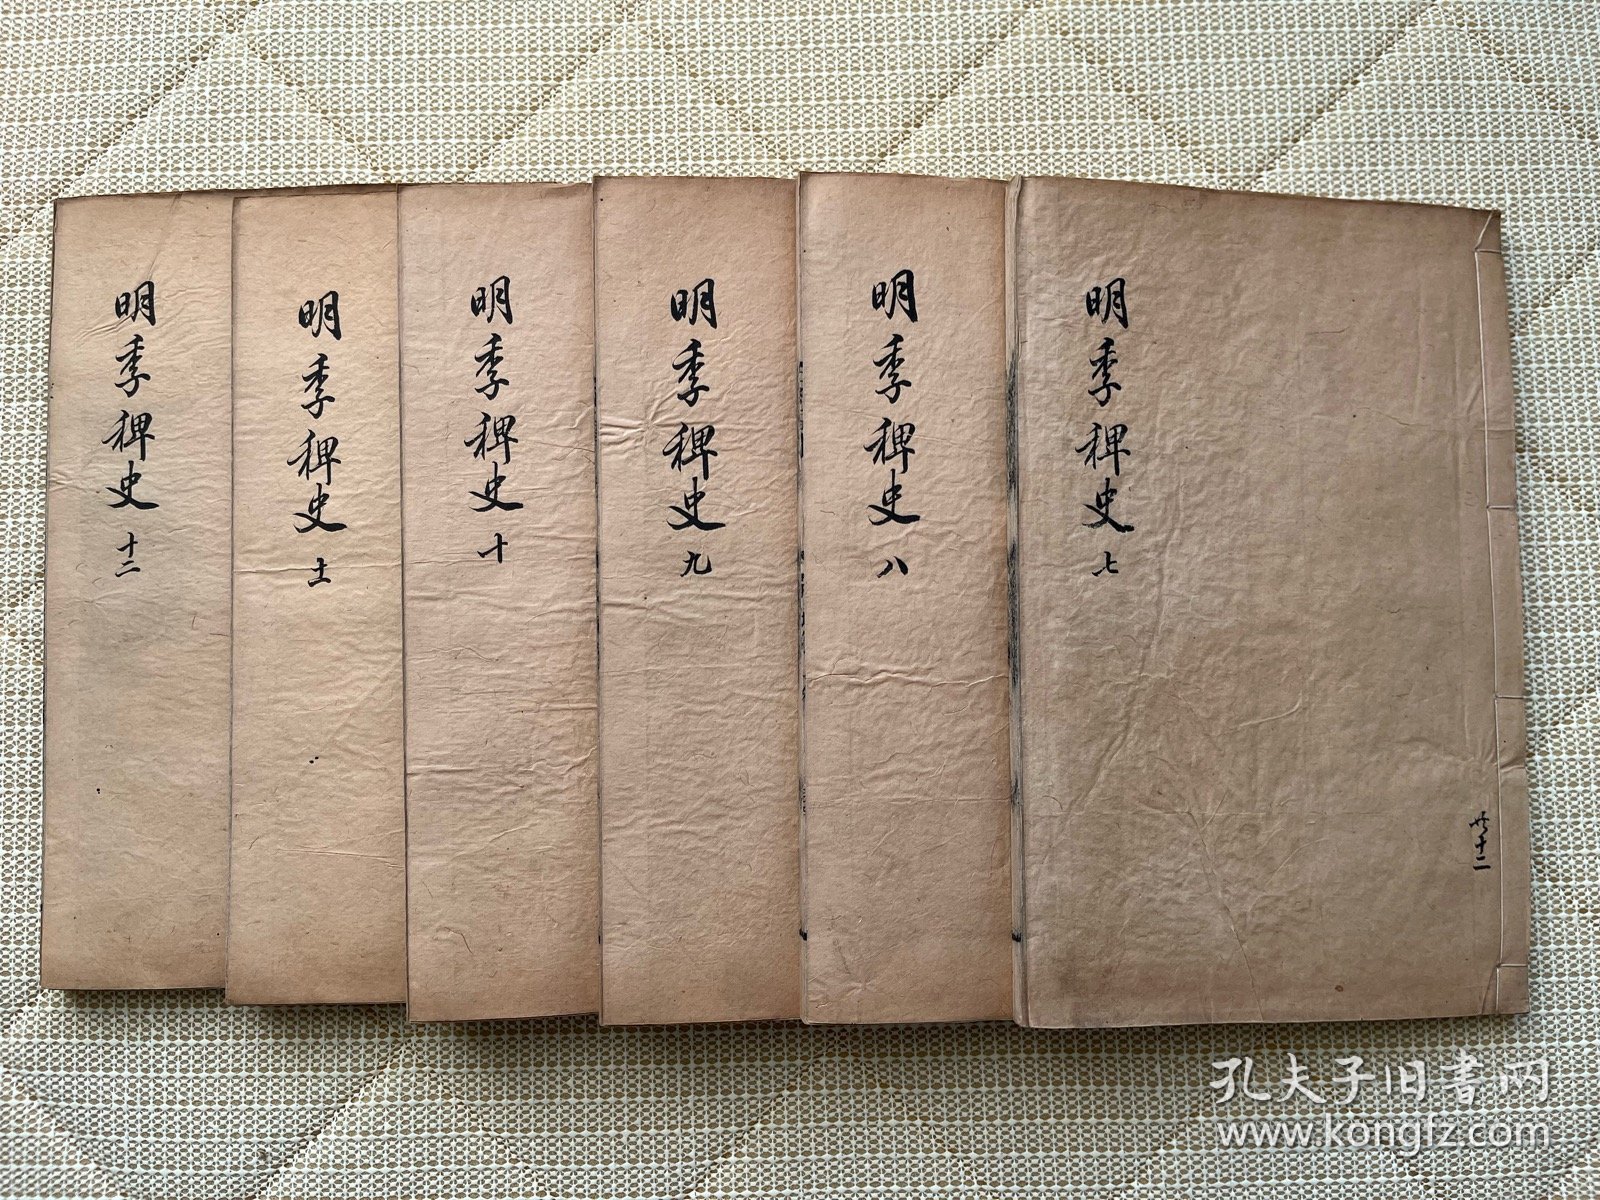 明季稗史 七
廿十二
明季稗史 八
明季稗史 九
明季稗史 十
明季稗史 十一
明季稗史 十二
孔夫子旧书网
www.kongfz.com